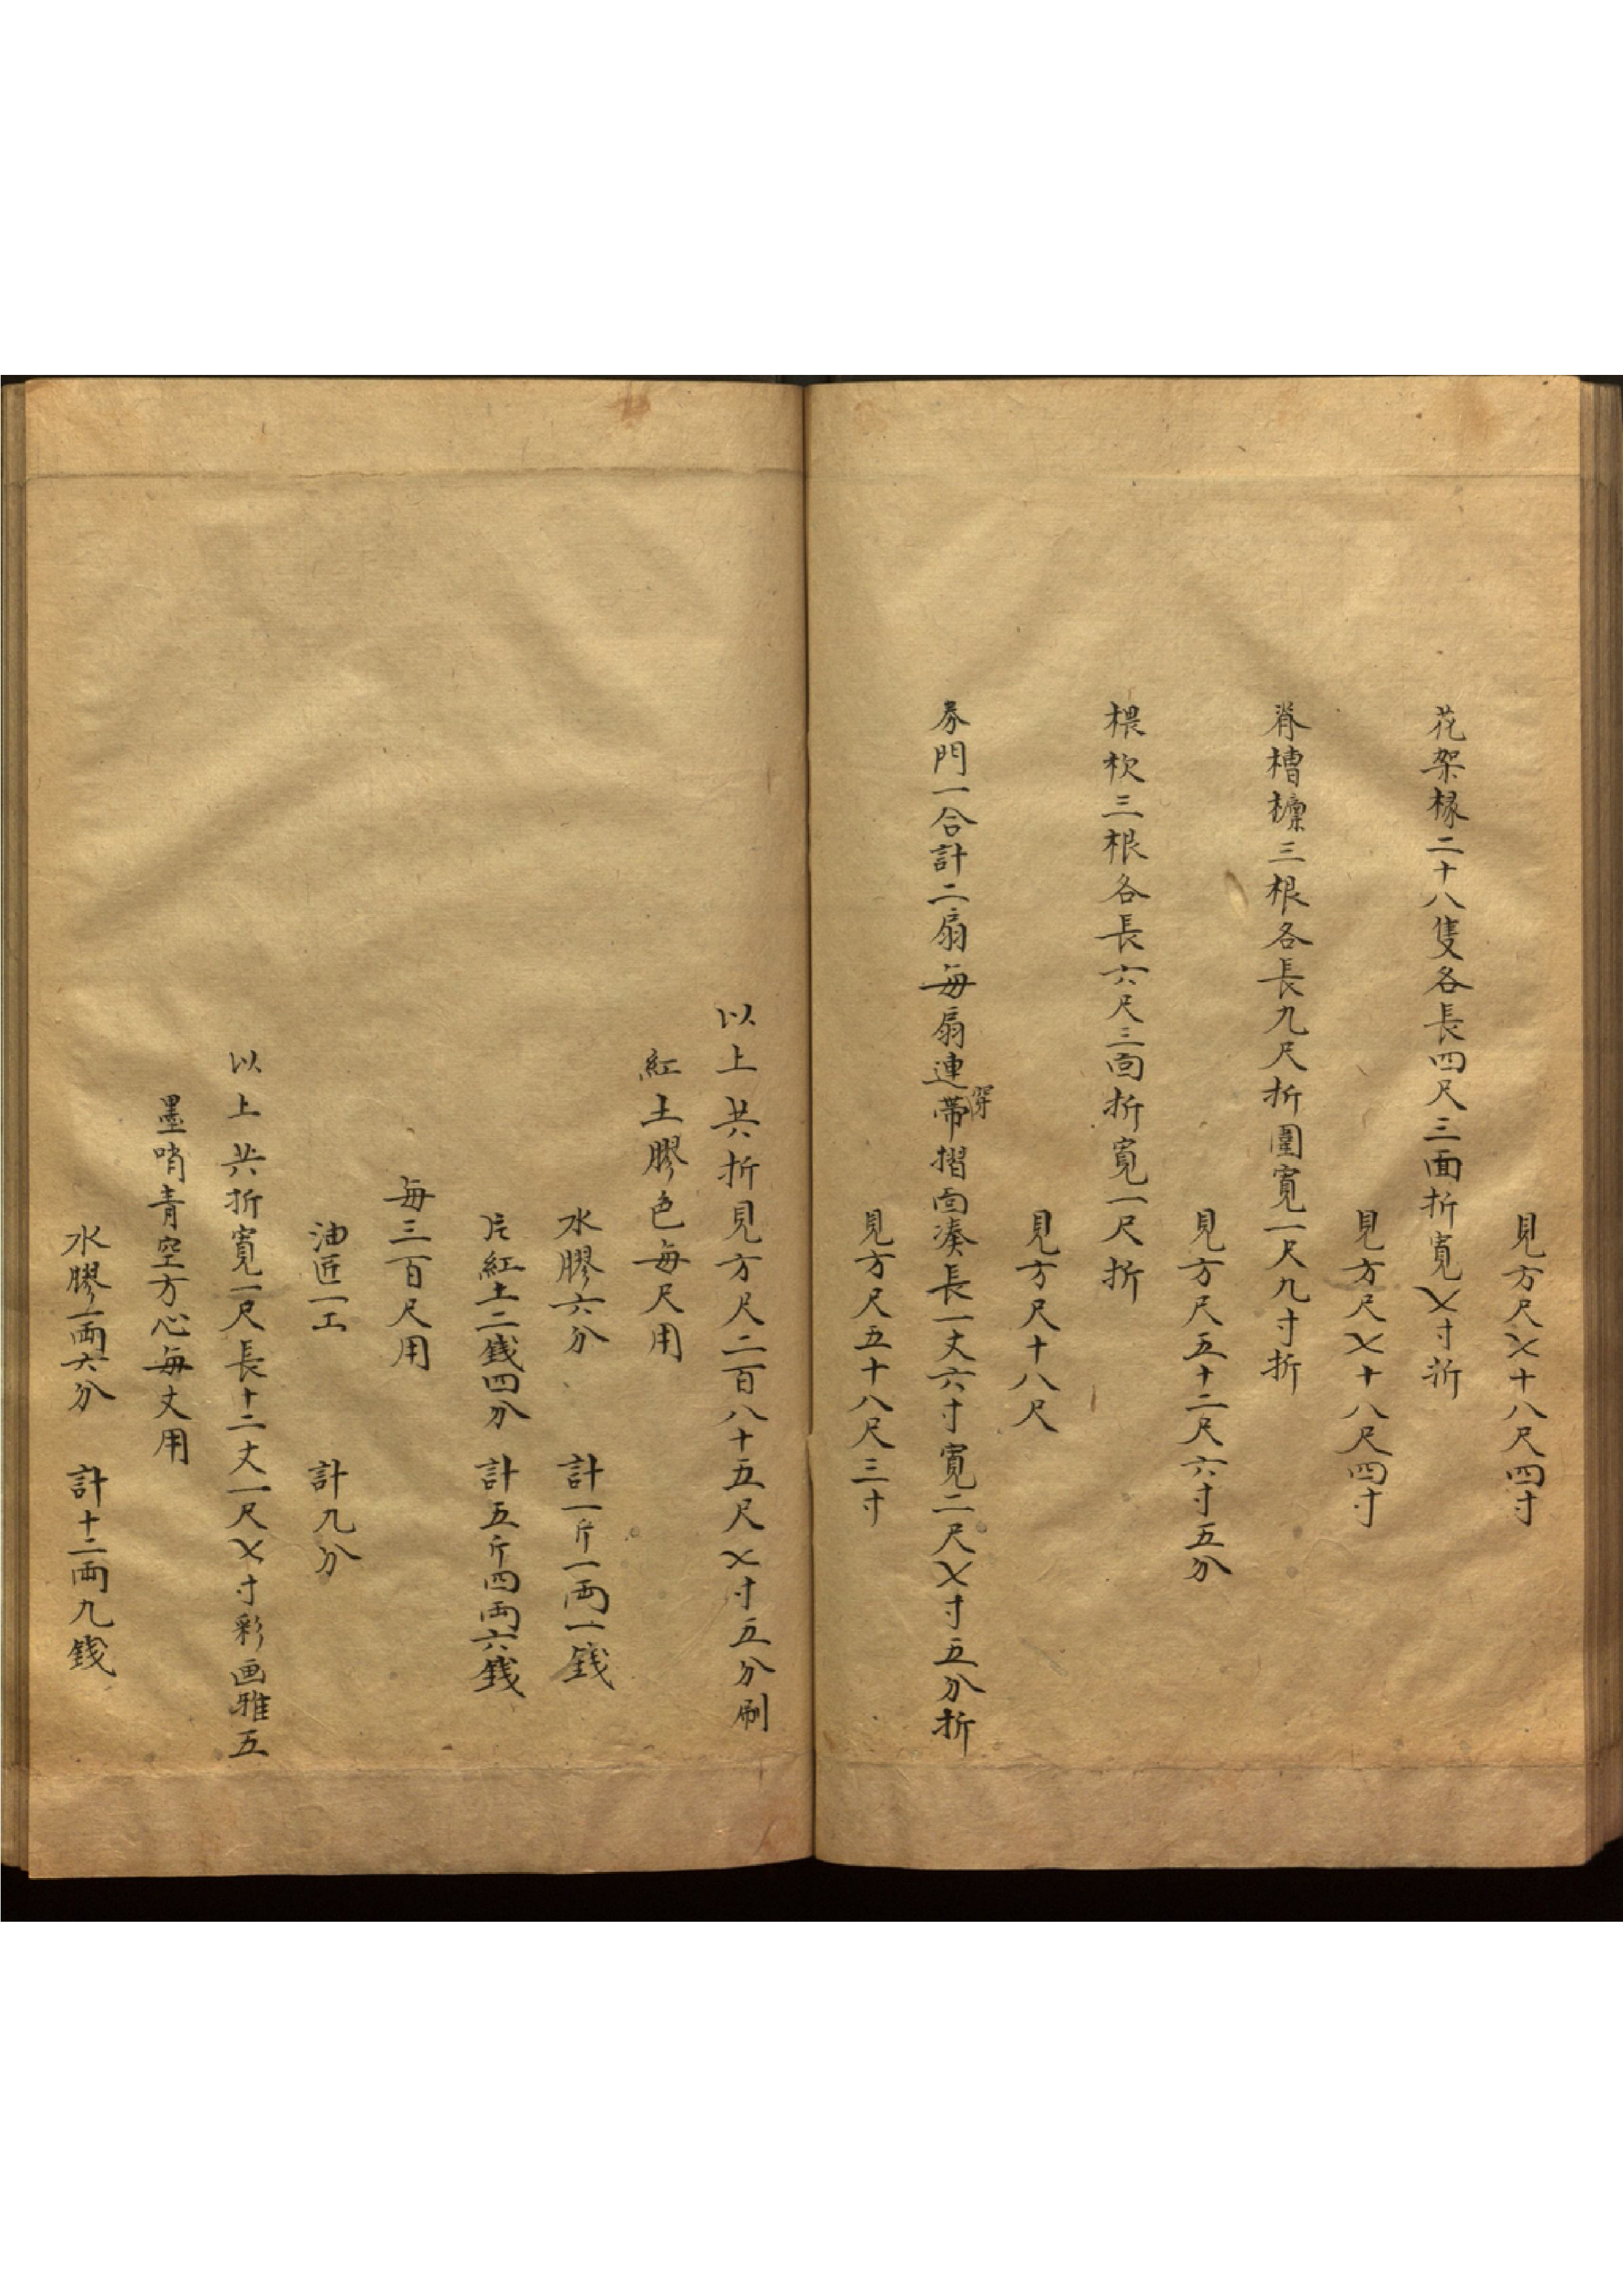 見方尺乂十八尺四寸
花架椽二十八隻各長四尺三面折寬乂寸折
見方尺乂十八尺四寸
脊槽檩三根各長九尺折圍寬一尺九寸折
見方尺五十二尺六寸五分
椳杴三根各長六尺三面折寬一尺折
見方尺十八尺
券門一合計二扇每扇連帶摺面湊長一丈六寸寬二尺乂寸五分折
穿
見方尺五十八尺三寸
以上共折見方尺二百八十五尺乂寸五分刷
紅土膠色每尺用
水膠六分 計一斤一両一錢
片紅土二錢四分 計五斤四両六錢
每三百尺用
油匠一工 計九分
以上共折寬一尺長十二丈一尺乂寸彩画雅五
墨哨青空方心每丈用
水膠一両六分 計十二両九錢